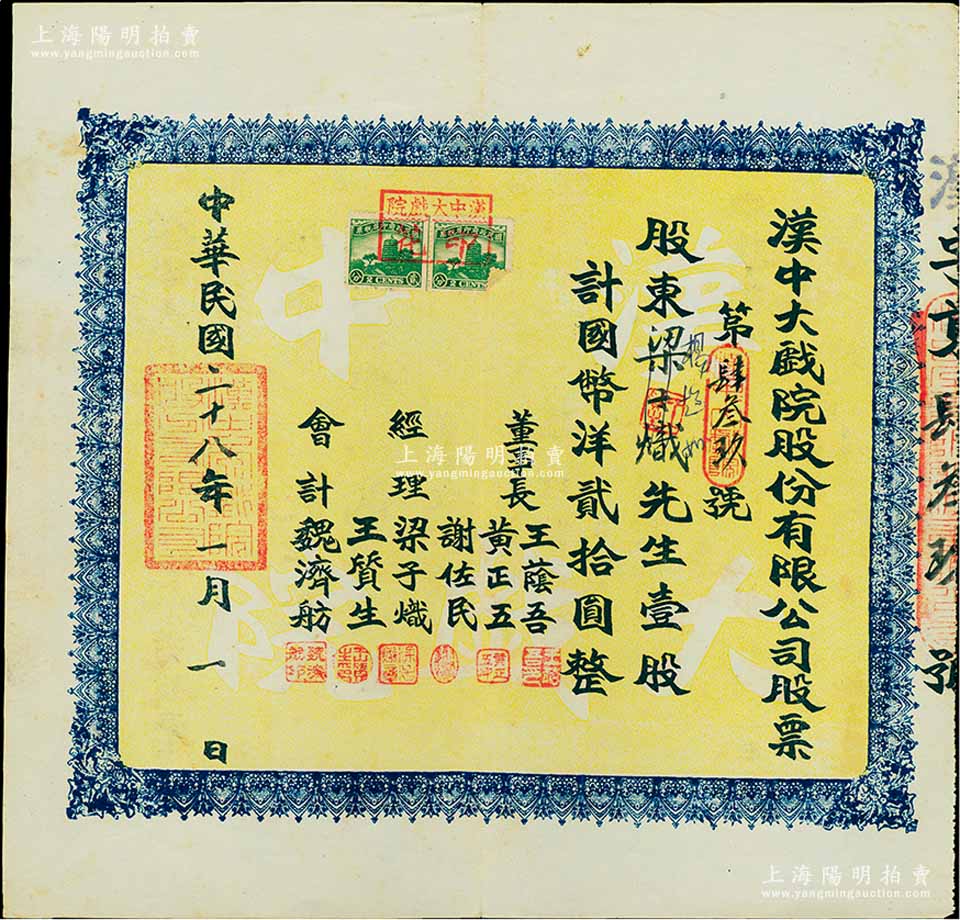 上海陽明拍賣
www.yangmingauction.com
漢中大戲院股份有限公司股票
第肆叁玖號
股東梁子熾先生壹股
計國幣洋貳拾圓整
董事長 王蔭吾
黃正五
謝佐民
經理 梁子熾
王質生
會計 魏濟舫
中華民國二十八年一月一日
漢中大戲院
2 CENTS
2 CENTS
漢中
大戲院
肆叁玖號
上海陽明拍賣
www.yangmingauction.com
上海陽明拍賣
www.yangmingauction.com